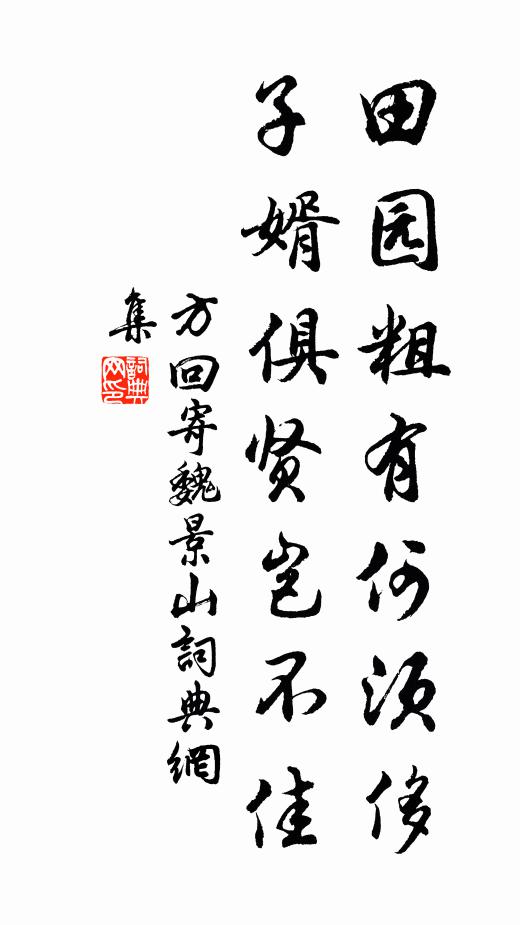 田园粗有何须侈
子婿俱贤岂不佳
方回寄魏景山詞典網
集
詞典網印